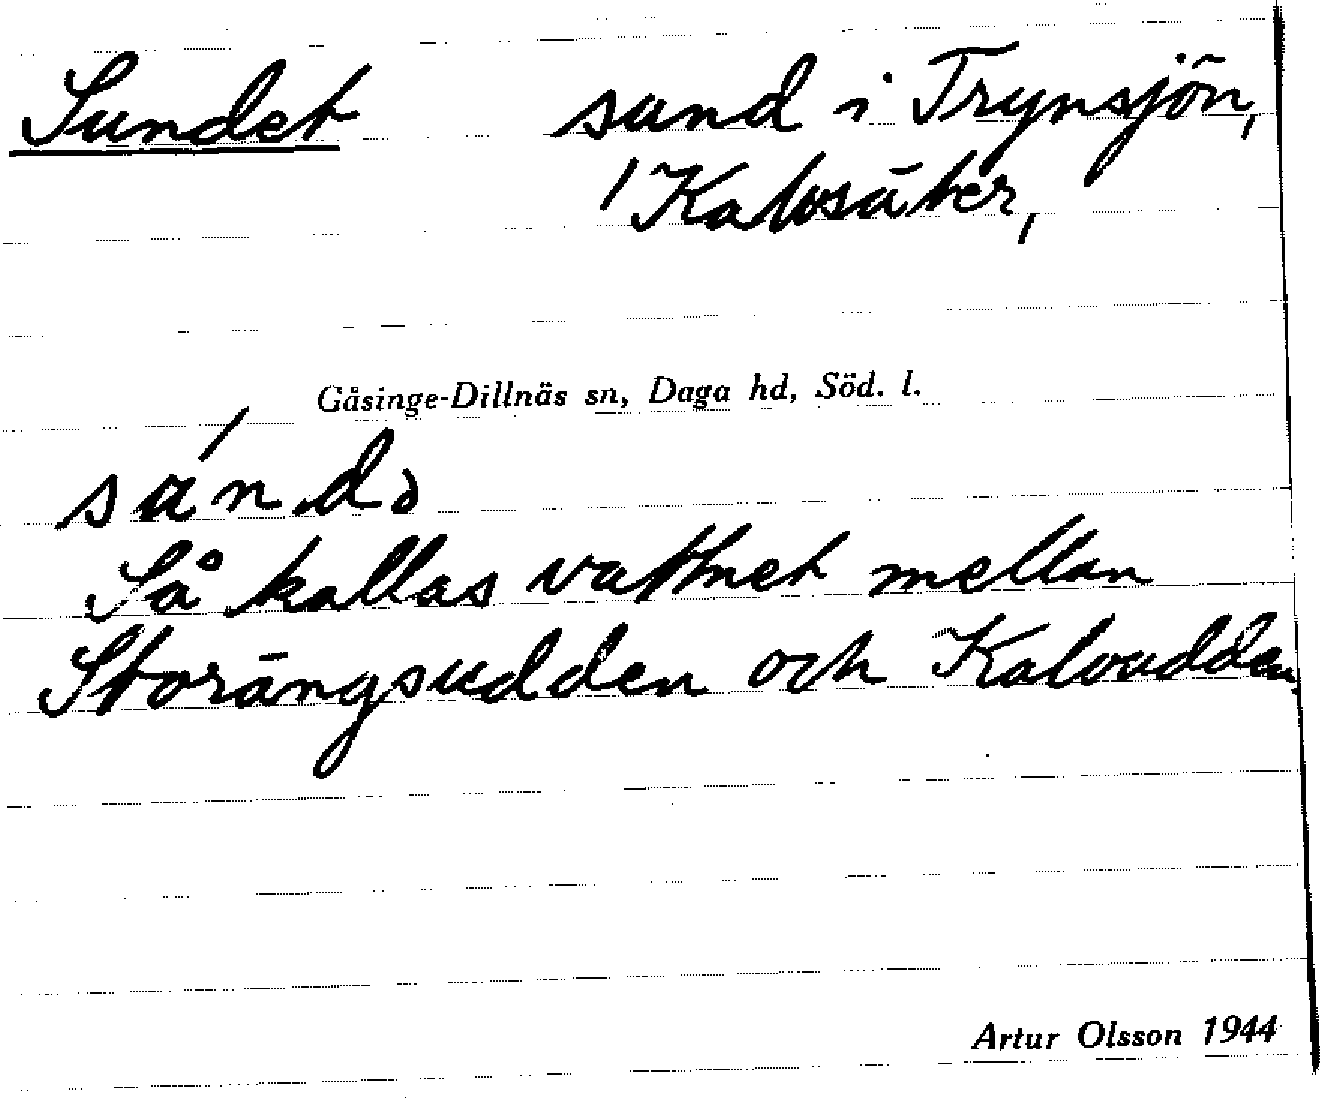 Sundet sund i Trynsjön,
/Kalvsäter,
Gåsinge-Dillnäs sn, Daga hd, Söd. l.
Så kallas vattnet mellan
Storängsudden och Kalvudden.
Artur Olsson 1944